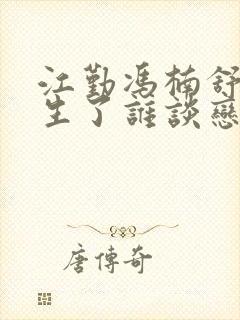 江勤馮楠舒
生了誰談戀
唐傳奇